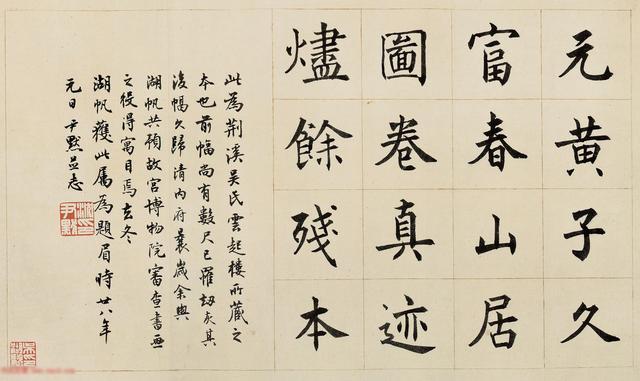 元黃子久
富春山居
圖卷真迹
燼餘殘本
此為荆溪吳氏雲起樓所藏之
本也前幅尚有數尺已罹劫灰其
後幅久歸清內府曩歲余與
湖帆共預故宮博物院審查書畫
之役得寓目焉去冬
湖帆獲此屬為題眉時廿八年
元日尹默並志